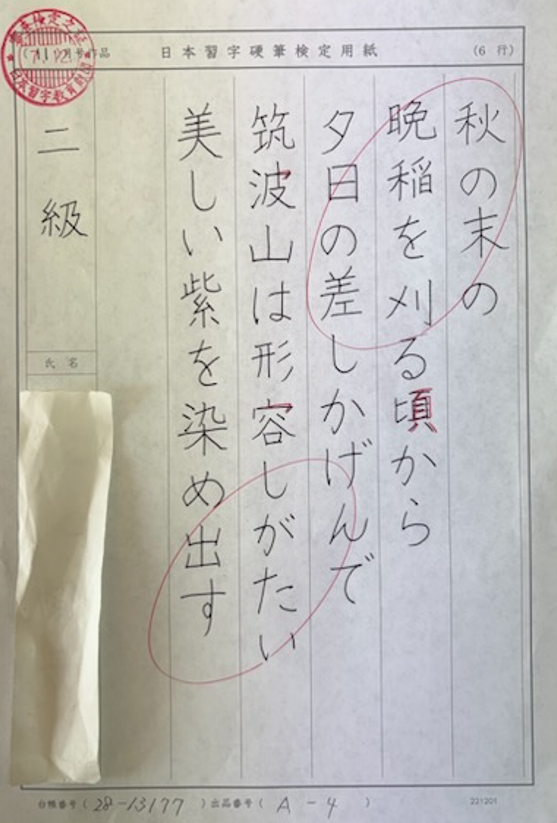 日本習字硬筆検定用紙
(6 行)
秋の末の
晩稲を刈る頃から
夕日の差しかげんで
筑波山は形容しがたい
美しい紫を染め出す
二級
氏名
台帳番号(28-13177)出品番号(A-4)
221201